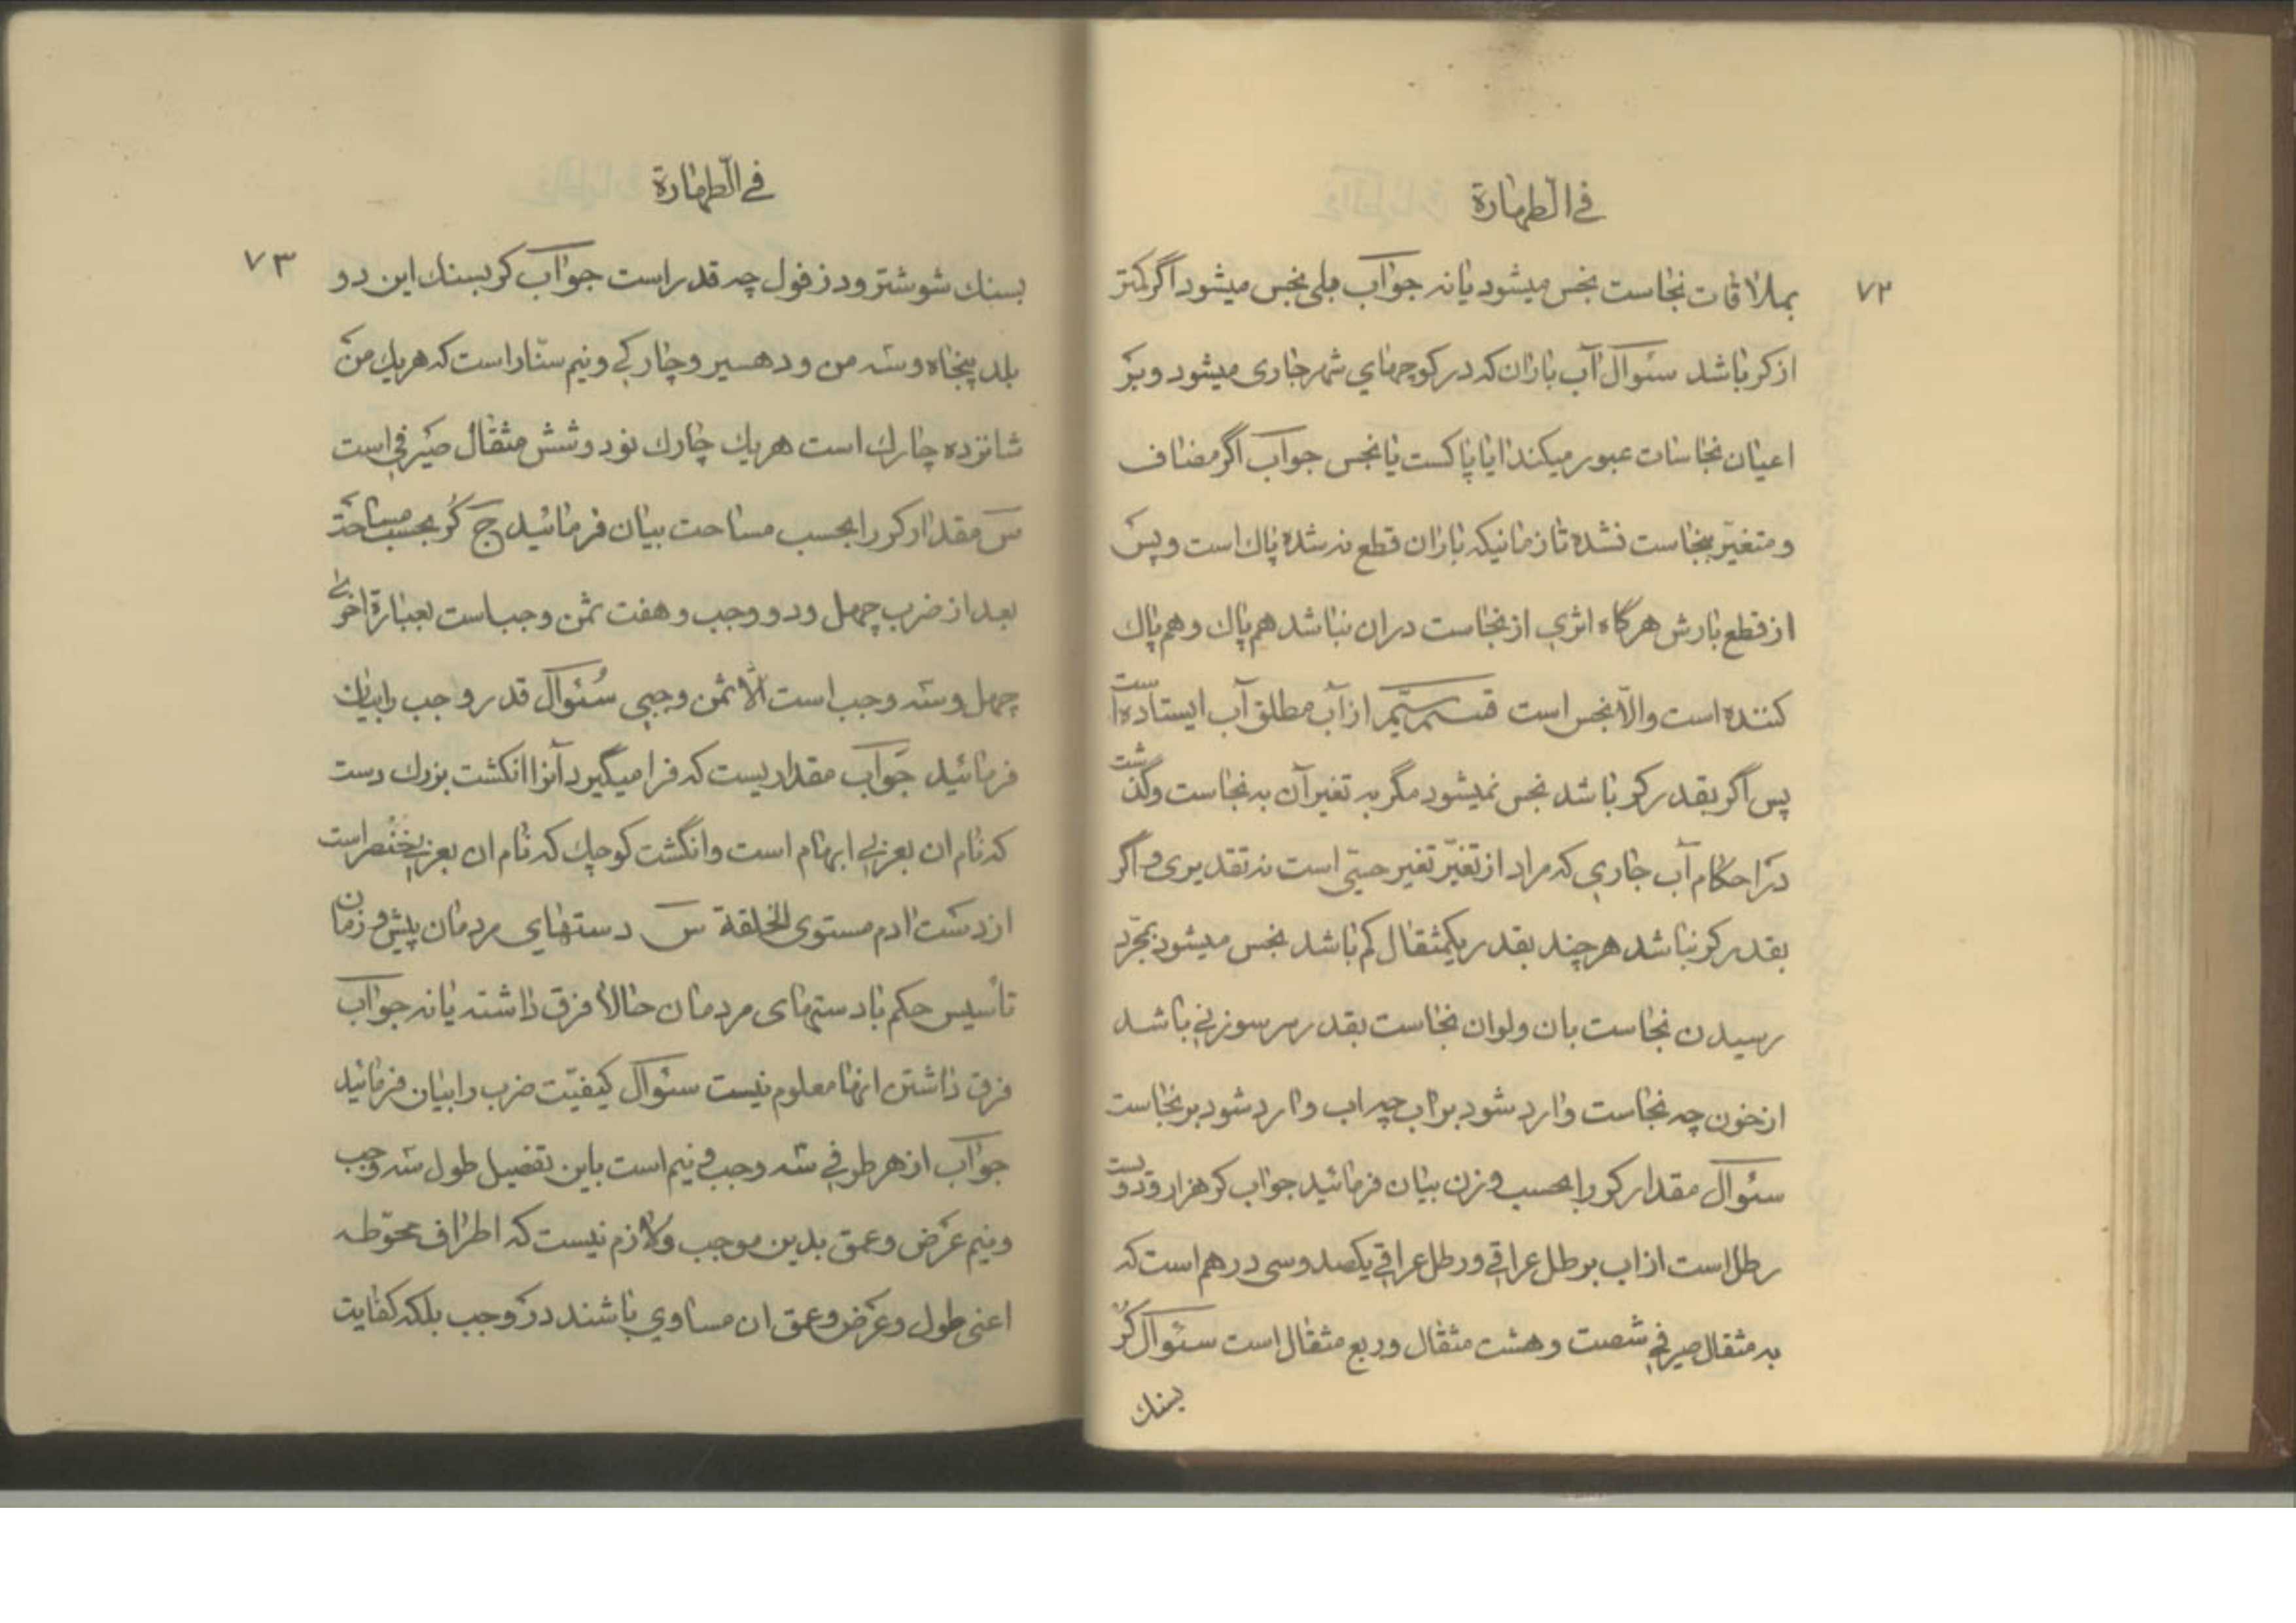 في الطهارة
٧٢
بملاقات نجاست نجس میشود یا نه جواب بلی نجس میشود اگر کمتر
از کر باشد سئوال آب باران که در کوچهای شهر جاری میشود و بر
اعیان نجاسات عبور میکند ایا پاکست یا نجس جواب اگر مضاف
و متغیّر بنجاست نشده تا زمانیکه باران قطع نه شده پاك است و پس
از قطع بارش هرگاه اثری از نجاست دران نباشد هم پاك و هم پاك
کننده است و الّا نجس است قسم سیّم از آب مطلق آب ایستاده است
پس اگر بقدر کر باشد نجس نمیشود مگر به تغیر آن به نجاست و گذشت
در احکام آب جاری که مراد از تغیّر تغیر حسّی است نه تقدیری و اگر
بقدر کر نباشد هر چند بقدر یکمثقال کم باشد نجس میشود بمجرّد
رسیدن نجاست بان و لو ان نجاست بقدر سر سوزنی باشد
از خون چه نجاست وارد شود بر اب چه اب وارد شود بر نجاست
سئوال مقدار کر را بحسب وزن بیان فرمائید جواب کر هزار و دویست
رطل است از اب برطل عراقی و رطل عراقی یکصد و سی درهم است که
به مثقال صیرفی شصت و هشت مثقال و ربع مثقال است سئوال کر
بسنك
في الطهارة
٧٣
بسنك شوشتر و دزفول چه قدر است جواب کر بسنك این دو
بلد پنجاه و سه من و دهسیر و چارکی و نیم ستار است که هر یك من
شانزده چارك است هر یك چارك نود و شش مثقال صیرفی است
س مقدار کر را بحسب مساحت بیان فرمائید ج کر بحسب مساحة
بعد از ضرب چهل و دو وجب و هفت ثمن وجب است بعبارة اخری
چهل و سه وجب است الّا ثمن وجبی سئوال قدر وجب را بیان
فرمائید جواب مقدار یست که فرا میگیرد آنرا انگشت بزرك دست
که نام ان بعربی ابهام است و انگشت کوچك که نام ان بعربی خنصر است
از دست ادم مستوی الخلقة س دستهای مردمان پیش و زمان
تأسیس حکم با دستهای مردمان حالا فرق داشته یا نه جواب
فرق داشتن انها معلوم نیست سئوال کیفیّت ضرب را بیان فرمائید
جواب از هر طرفی سه وجب و نیم است باین تفصیل طول سه وجب
و نیم عرض و عمق بدین موجب و لازم نیست که اطراف محوّطه
اعنی طول و عرض و عمق ان مساوی باشند در وجب بلکه کفایت